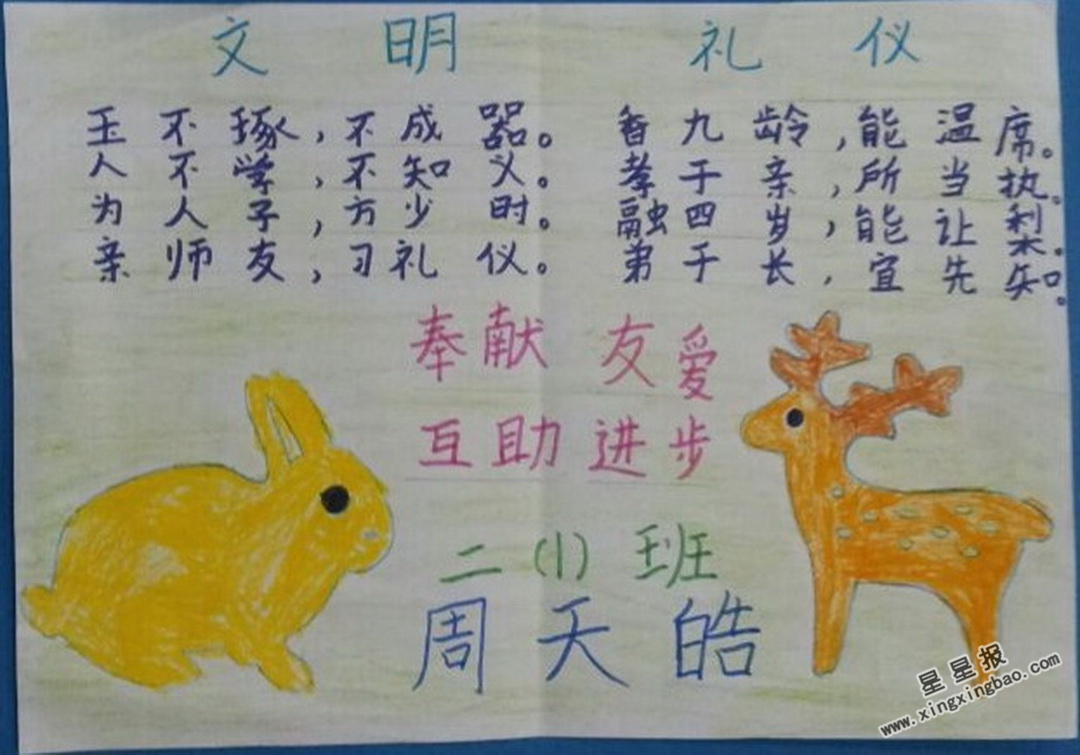 文明 礼仪
玉不琢,不成器。
人不学,不知义。
为人子,方少时。
亲师友,习礼仪。
香九龄,能温席。
孝于亲,所当执。
融四岁,能让梨。
弟于长,宜先知。
奉献 友爱
互助 进步
二(1)班
周天皓
星星报
www.xingxingbao.com